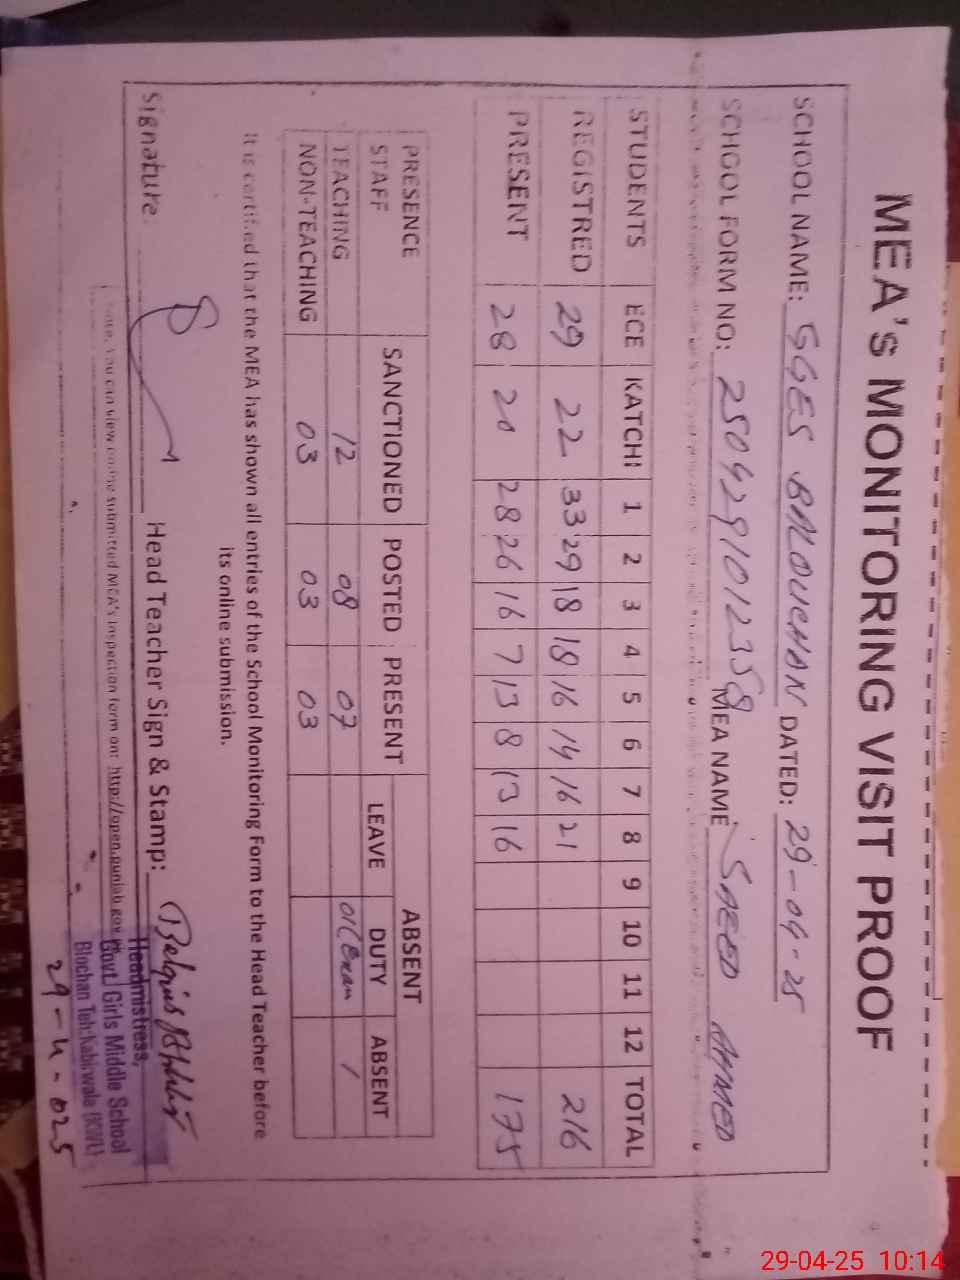 MEA's MONITORING VISIT PROOF
SCHOOL NAME: GGES BALOUCHAN DATED: 29-04-25
SCHOOL FORM NO: 2504291012358 MEA NAME SAEED AHMED
STUDENTS ECE KATCHI 1 2 3 4 5 6 7 8 9 10 11 12 TOTAL
REGISTRED 29 22 33 29 18 18 16 14 16 21 216
PRESENT 28 20 28 26 16 7 13 8 13 16 175
PRESENCE SANCTIONED POSTED PRESENT ABSENT
STAFF LEAVE DUTY ABSENT
TEACHING 12 08 07 01(Exam /
NON-TEACHING 03 03 03
It is certified that the MEA has shown all entries of the School Monitoring Form to the Head Teacher before
its online submission.
Signature Head Teacher Sign & Stamp:
Headmistress,
Note: You can view online submitted MEA's inspection form on: http://open.punjab.gov.pk
Govt. Girls Middle School
Blochan Teh: Kabirwala (KWL)
29-4-025
29-04-25 10:14